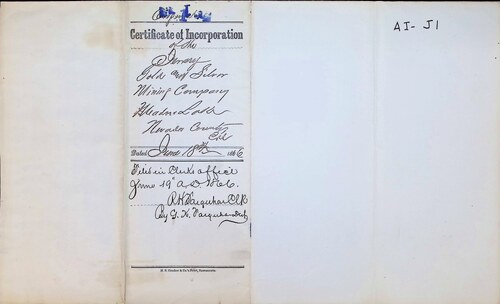 I
AI-J1
Certificate of Incorporation
of the
Gold and Silver
Mining Company
Meadow Lake
Nevada County
Cal
Dated June 18th 1866
Filed in Clerk's office
June 19th A.D. 1866.
R H Farquhar Clk
By G. K. Farquhar Dpty
H. S. Crocker & Co's Print, Sacramento.